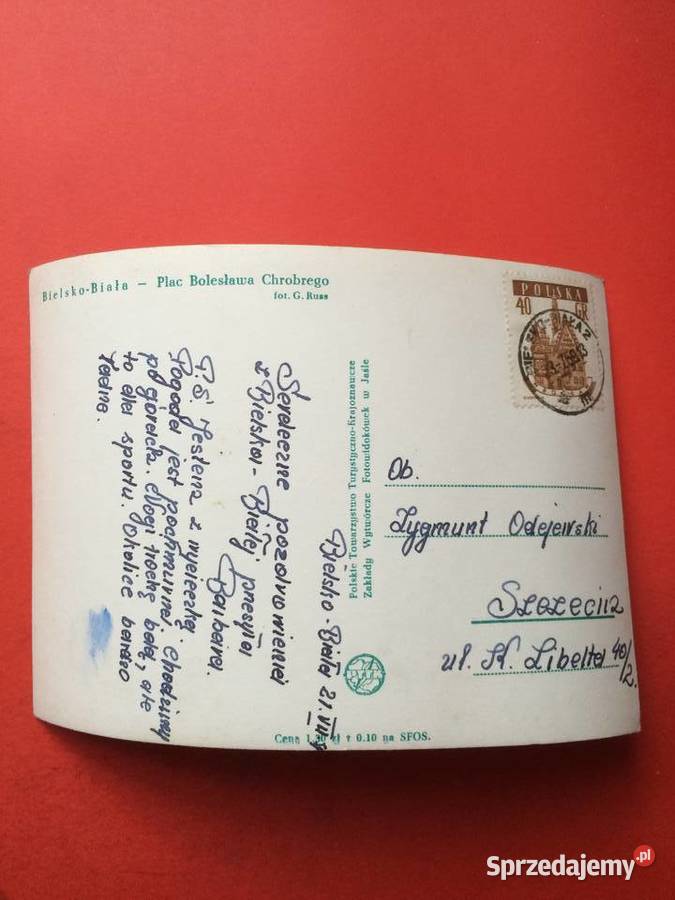 Bielsko-Biała — Plac Bolesława Chrobrego
fot. G. Russ
Bielsko-Biała 21.VII
Serdeczne pozdrowienia
z Bielska-Białej przesyła
Barbara.
P.S. Jestem z wycieczką.
Pogoda jest pochmurna. Chodzimy
po górach. Nogi trochę bolą, ale
to dla sportu. Okolice bardzo
ładne.
Polskie Towarzystwo Turystyczno-Krajoznawcze
Zakłady Wytwórcze Fotowidokówek w Jaśle
PTTK
Cena 1.30 zł + 0.10 na SFOS.
POLSKA
40 GR
BIELSKO-BIAŁA 2
Ob.
Zygmunt Odejewski
Szczecin 2
ul. K. Libelta 40/2.
Sprzedajemy.pl